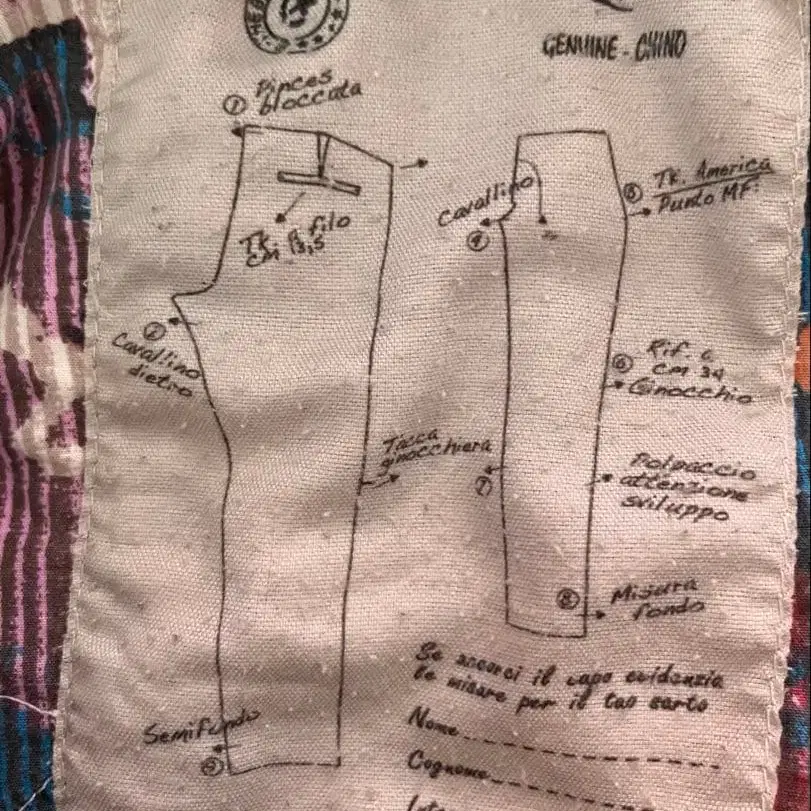 GENUINE - CHINO
① Pinces
bloccata
Tk a filo
cm 13,5
② Cavallino
dietro
Tacca
ginocchiera
Semifondo
Cavallino
④
⑤ Tk. America
Punto MF:
⑥ Rif. a
cm 34
Ginocchio
⑦
Polpaccio
attenzione
sviluppo
⑧ Misura
fondo
Se accorci il capo evidenzia
le misure per il tuo sarto
Nome
Cognome